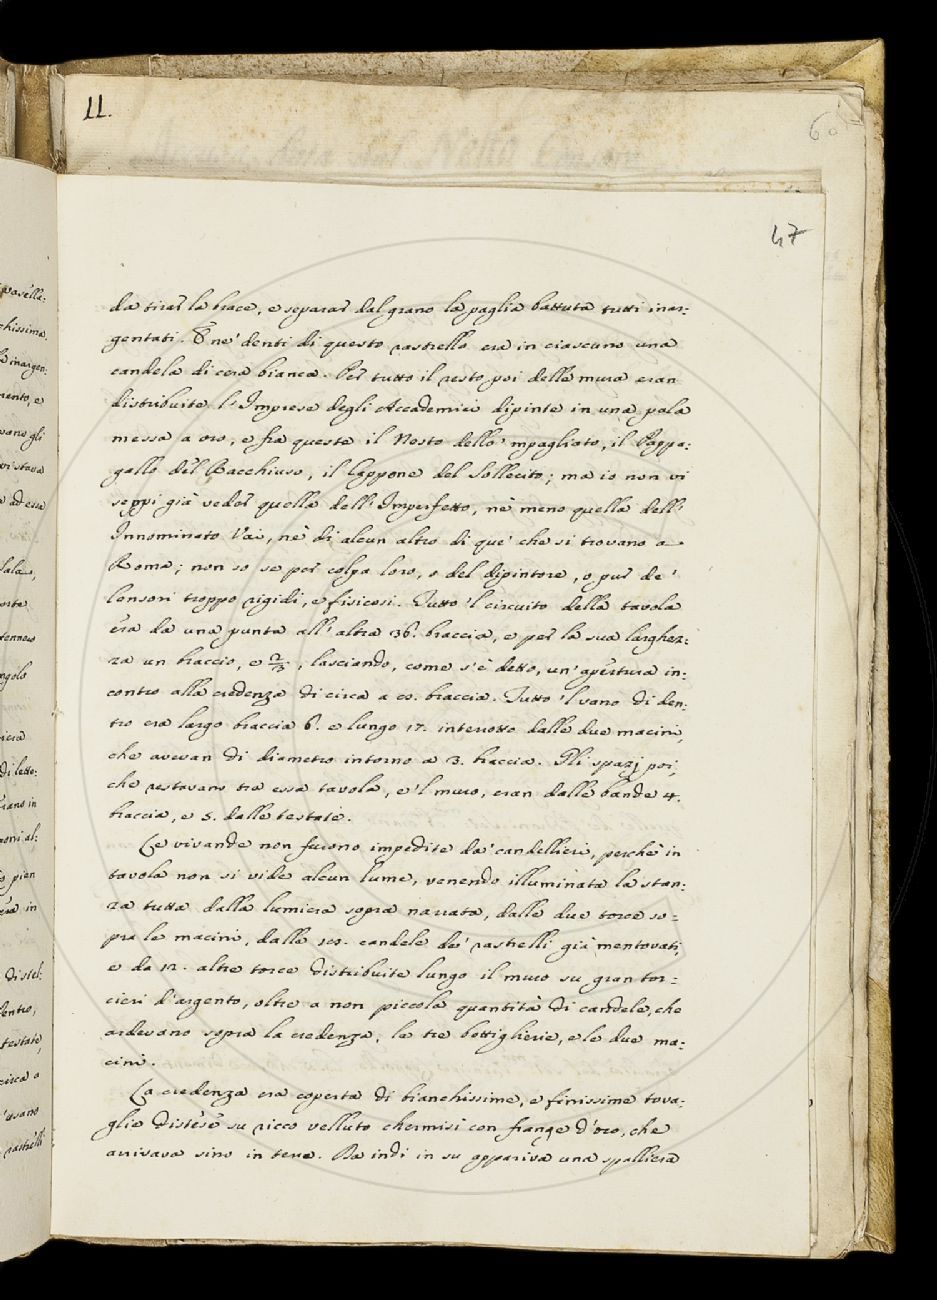 11.
60
47
da tirar la brace, e separar dal grano la paglia battuta tutti inar:
gentati. E ne' denti di questo rastrello era in ciascuno una
candela di cera bianca. Per tutto il resto poi delle mura eran
distribuite l'Imprese degli Accademici dipinte in una pala
messa a oro, e fra queste il Nosto dello 'mpagliato, il Pappa:
gallo del Bacchiuso, il Cappone del Sollecito; ma io non vi
seppi già veder quella dell'Imperfetto, nè meno quella dell'
Innominato Vai, nè di alcun altro di que' che si trovano a
Roma; non so se per colpa loro, o del dipintore, o pur de'
Censori troppo rigidi, e fisicosi. Tutto 'l circuito della tavola
era da una punta all'altra 36. braccia, e per la sua larghez:
za un braccio, e 2/3, lasciando, come s'è detto, un'apertura in:
contro alla credenza di circa a co. braccia. Tutto 'l vano di den:
tro era largo braccia 6. e lungo 17. interrotto dalle due macini,
che avevan di diametro intorno a 3. braccia. Gli spazj poi,
che restavano tra essa tavola, e 'l muro, eran dalle bande 4.
braccia, e 5. dalle testate.
Le vivande non furono impedite da' candellieri, perchè in
tavola non si vide alcun lume, venendo illuminata la stan:
za tutta dalla lumiera sopra narrata, dalle due torce so:
pra le macini, dalle candele de' rastrelli già mentovati,
e da 12. altre torce distribuite lungo il muro su gran tor:
cieri d'argento, oltre a non piccola quantità di candele, che
ardevano sopra la credenza, le tre bottiglierie, e le due ma:
cini.
La credenza era coperta di bianchissime, e finissime tova:
glie distese su ricco velluto chermisi con frange d'oro, che
arrivava sino in terra. Da indi in su appariva una spalliera